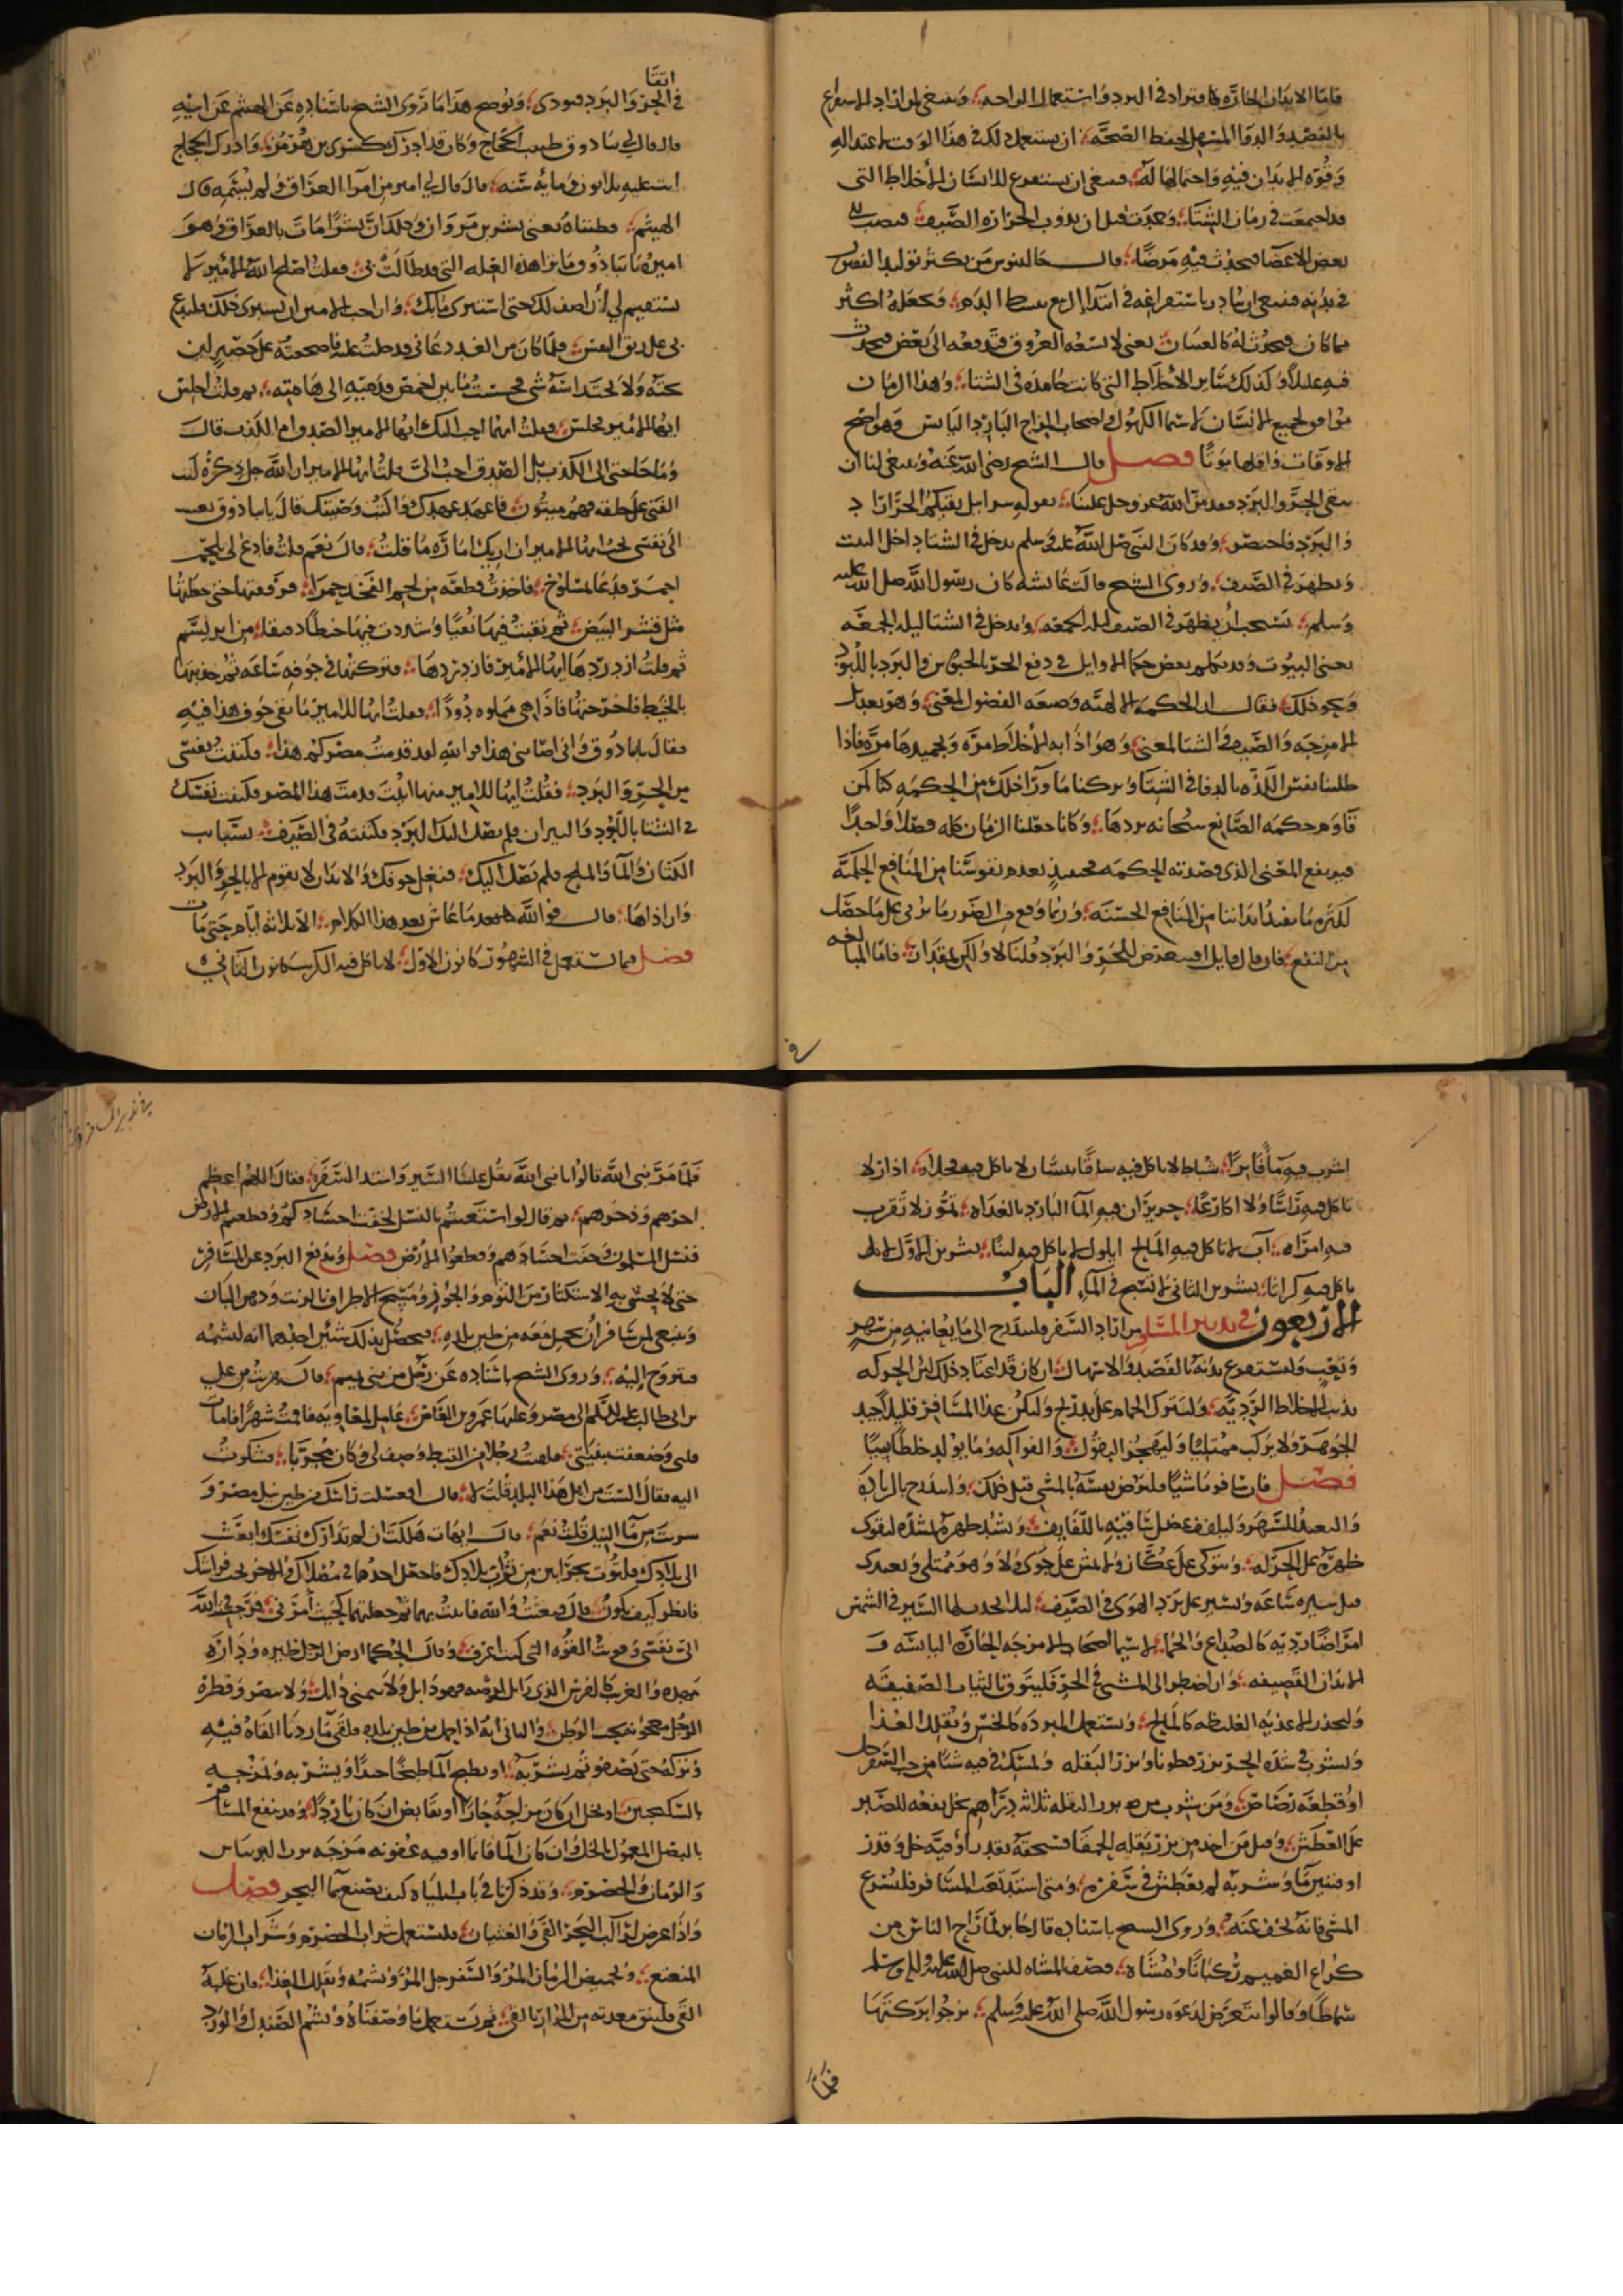 فاما الابدان الحارة فا في البرد واستعمال الواحد وينبغي لمن اراد الاسراع
بالفصد والدوا المسهل لحفظ الصحة ان يستعمل ذلك في هذا الوقت لاعتداله
وقوة الابدان فيه واحتمالها له فينبغي ان يستفرغ للانسان الاخلاط التي
قد اجتمعت في زمان الشتا وجمدت قبل ان يذوب الحرارة الصيف فينصب الى
بعض الاعضا فيحدث فيه مرضا قال جالينوس من يكثر تولد الفضول
في بدنه فينبغي ان يبادر باستفراغه في ابتدا الربيع الدم ويجعله اكثر
مما كان فيحدث له كالغسان يعني لا تسعه العروق فتدفعه الى بعض فيحدث
فيه عللا وكذلك ساير الاخلاط التي كانت جامدة في الشتا وهذا الزمان
موافق لجميع الانسان لا سيما الكهول واصحاب المزاج البارد اليابس وهو اصح
الاوقات واقلها موتا فصل قال الشيخ رضي الله عنه وينبغي لنا ان
نتقي الحر والبرد فقد من الله عز وجل علينا بقوله سرابيل تقيكم الحر اراد
والبرد فاختصر وقد كان النبي صلى الله عليه وسلم يدخل في الشتا داخل البيت
ويظهر في الصيف وروى الشيخ قالت عايشة كان رسول الله صلى الله عليه
وسلم يستحب ان يظهر في الصيف ليلة الجمعة ويدخل في الشتا ليلة الجمعة
يعني البيوت وقد بعض حكما الاوايل في دفع الحر بالخيش والبرد باللبود
ونحو ذلك فقال ان الحكمة الالهية وضعة الفصول لمعنى وهو تعديل
الامزجة والصيف والشتا لمعنى وهو اذابة الاخلاط مرة وتجميدها مرة فاذا
طلبنا نفس اللذة بالدفا في الشتا وتركنا ما ورا ذلك من الحكمة كنا كمن
قاوم حكمة الصانع سبحانه بردها وكانا جعلنا الزمان كله فصلا واحدا
فيرتفع المعنى الذي قصدته الحكمة فحينيذ تعدم نفوسنا من المنافع الحكمية
لكثرة ما يفيد ابداننا من المنافع الحسنة وربما وقع من الضرر ما يربى على ما حصل
من النفع فان قال قايل افنتعرض للحر والبرد قلنا لا ولكن بمقدار فاما المبالغه
في
اتقا
في الحر والبرد فيوذي ويوضح هذا ما روى الشيخ باسناده عن الهيثم عن ابيه
قال قال لي تياذوق طبيب الحجاج وكان قد ادرك كسرى بن هرمز وادرك الحجاج
اتت عليه ثلاثون ومايه سنه قال قال لي امير من امرا العراق ولم يسمه قال
الهيثم فظنناه يعني بشر بن مروان وذلك ان بشرا مات بالعراق وهو
اميره يا تياذوق ما ترا هذه العله التي قد طالت بي فقلت اصلح الله الامير لا
تستقيم لي ان اصف لك حتى استبري ما بك وان احب الامير ان يستبري ذلك فليدع
بي على ريق النفس فلما كان من الغد دعاني فدخلت عليه فاضجعته على حصير ليس
تحته ولا تحتد اسه شي فجسست ما بين اخمص قدميه الى هامته ثم قلت اجلس
ايها الامير فجلس فقلت ايهما احب اليك ايها الامير الصدق ام الكذب قال
وما حاجتى الى الكذب بل الصدق احب الي قلت ايها الامير ان الله جل ذكره كتب
الفنى على خلقه فهم ميتون فاعهد عهدك واكتب وصيتك قال ياتياذوق نعيت
الي نفسي تحب ايها الامير ان اريك امارة ما قلت قال نعم قلت فادع لي بلحم
احمر فدعا المسلوخ فاخذت قطعه من لحم الفخذ حمرا فرققتها حتى جعلتها
مثل قشر البيض ثم نقبت فيها نقبا وشددت فيها خيطا دقيقا من ابريسم
ثم قلت ازدردها ايها الامير فازدردها فتركتها في جوفه ساعه ثم جذبتها
بالخيط فاخرجتها فاذا هي مملوه دودا فقلت ايها الامير ما بقى جوف هذا فيه
فقال ياتياذوق واني اصابني هذا فوالله لقد قدمت مصركم هذا فكننت نفسي
من الحر والبرد فقلت ايها الامير منها اتيت قدمت هذا المصر فكننت نفسك
في الشتا باللبود والنيران فلم يصل اليك البرد وكننته في الصيف بثياب
الكتان والما والثلج فلم يصل اليك فنغل جوفك والابدان لا يقوم الا بالحر والبرد
وان اذاها قال فوالله ما عاش بعد هذا الكلام الا ثلاثه ايام حتى مات
فصل فيما يستعمل في الشهور كانون الاول لا ياكل فيه الكرنب كانون الثاني
اشرب فيه ما فاترا شباط لا ياكل فيه سلقا نيسان لا ياكل فيه فجلا اذار لا
ياكل فيه راسا ولا اكارعا حزيران فيه الما البارد بالغداه تموز لا تقرب
فيه امراه آب لا ياكل فيه المالح ايلول لا ياكل فيه لبنا تشرين الاول لا
ياكل فيه كراثا تشرين الثاني لا تسبح في الما الباب
الاربعون في تدبير المسافر من اراد السفر فليتدرج الى ما يعانيه من سهر
وتعب وليستفرغ بدنه بالفصد والاسهال ان كان قد اعتاد ذلك لئن الحركه
يذيب الاخلاط الرديه وليترك الحمام على تدريج وليكن غذا المسافر قليلا جيد
الجوهر ولا يركب ممتليا وليهجر البقول والفواكه وما يولد خلطا نيا
فصل فان سافر ماشيا فليرض نفسه بالمشي قبل ذلك وليتدرج بالرياضة
والتعب للسهر وليلفف عضل ساقيه باللفايف ويشد ظهره شده لتقوى
ظهره على الحركه ويتوكى على عكاز ولا يمش على جوى ولا وهو ممتلي
قبل سيره ساعه ويسير على برد الهوى في الصيف ليلا السير في الشمس
امراضا رديه كالصداع والحما لا سيما اصحاب الامزجه الحاره اليابسه و
الابدان القضيفه وان اضطر الى المشي في الحر فليتوق بالثياب الصفيقه
وليحذر الاغذيه الغليظه كالمالح ويستعمل المبرده كالخس ويقلل الغذا
وليشرب في شده الحر بزر قطونا وبزر البقله وليمسك في فيه شيا من حب السفرجل
او قطعه رصاص ومن شرب من بزر البقله ثلاثه دراهم بخل نفعه للصبر
على العطش وقيل من اخذ من بزر بقله الحمقا فسحقه بقدر اوقيه خل وقدر
اوقيتين ما وشربه لم يعطش في سفره ومتى اشتد تعب المسافر فليسرع
المشي فانه يخف عنه وروى الشيخ باسناده قال جابر لما راح الناس من
كراع الغميم ركبانا ومشاه فصف المشاه للنبي صلى الله عليه وسلم
سماطا وقالوا نتعرض لدعوه رسول الله صلى الله عليه وسلم نرجوا بركتها
فلما
فلما مر نبي الله قالوا يا نبي الله ثقل علينا السير واشتد السفر فقال اللهم اعظم
اجرهم وذخرهم ثم قال لو استعنتم بالنسل لخفت اجسادكم وقطعتم الارض
فنسل المسلمون وخفت اجسادهم وقطعوا الارض فصل ويدفع البرد عن المسافر
حتى لا يحس به الاستكثار من الثوم والجوز ومسح الاطراف بالزيت ودهن البان
وينبغي للمسافر ان يحمل معه من طين بلده فيحصل بذلك شئين احدهما انه لشمه
فتروح اليه وروى الشيخ باسناده عن رجل من بني تميم قال هربت من علي
بن ابي طالب عليه السلام الى مصر وعليها عمرو بن العاص عامل لمعاويه فاقمت شهرا فامات
قلبي وضعفت بقيتي فلقيت رجلا من القبط وصف لي وكان مجربا فشكوت
اليه فقال الست من اهل هذا البلد قلت لا قال افغسلت راسك من طين نيل مصر و
شربت من ما النيل قلت نعم قال ايهات هلكت ان لم تدارك نفسك ابعث
الى بلادك فلتوت بجرابين من تراب بلادك فاجعل احدهما في مغسلك والاخر تحت فراشك
فانظر كيف يكون قال فبعثت والله فاتيت بهما ثم جعلتهما كحيث امرني فرجع والله
الي نفسي وقويت القوه التي كنت اعرف وقال الحكما ارض الرجل ظيره وداره
مهده والغريب كالفرس الذي زايل ارضه فهو ذابل ولا ينمي ذابل ولا يثمر وفطرة
الرجل معجونه بحب الوطن والثاني انه اذا حمل من طين بلده فلقى ما رديا القاه فيه
وتركه حتى يصفو ثم يشربه او يطبخ الما طبخا جيدا ويشربه ويمزجه
بالسكنجبين او بخل ان كان مزاجه حارا او بقابض ان كان باردا وقد ينفع المسافر
بالبصل المعمول بالخل وان كان الما قايما او فيه عفونه مزجه برب الريباس
والرمان والحصرم وقد ذكرنا في باب المياه كيف يصنع بما البحر فصل
واذا عرض لراكب البحر القي والغثيان فليستعمل شراب الحصرم وشراب الرمان
المنعنع ولحميض الرمان المز والسفرجل المز ويشمه ويقلل الغذا فان غلبه
القي فلينق معدته من المرار بالقي ثم يستعمل ما وصفناه ويشم الصندل والورد